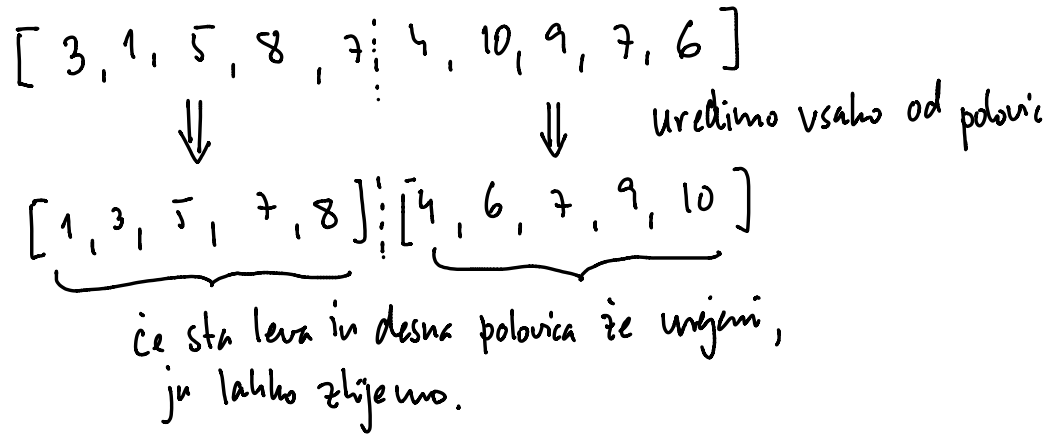 [ 3, 1, 5, 8, 7 4, 10, 9, 7, 6 ]
uredimo vsako od polovic
[1, 3, 5, 7, 8] [4, 6, 7, 9, 10]
če sta leva in desna polovica že urejeni,
ju lahko zlijemo.